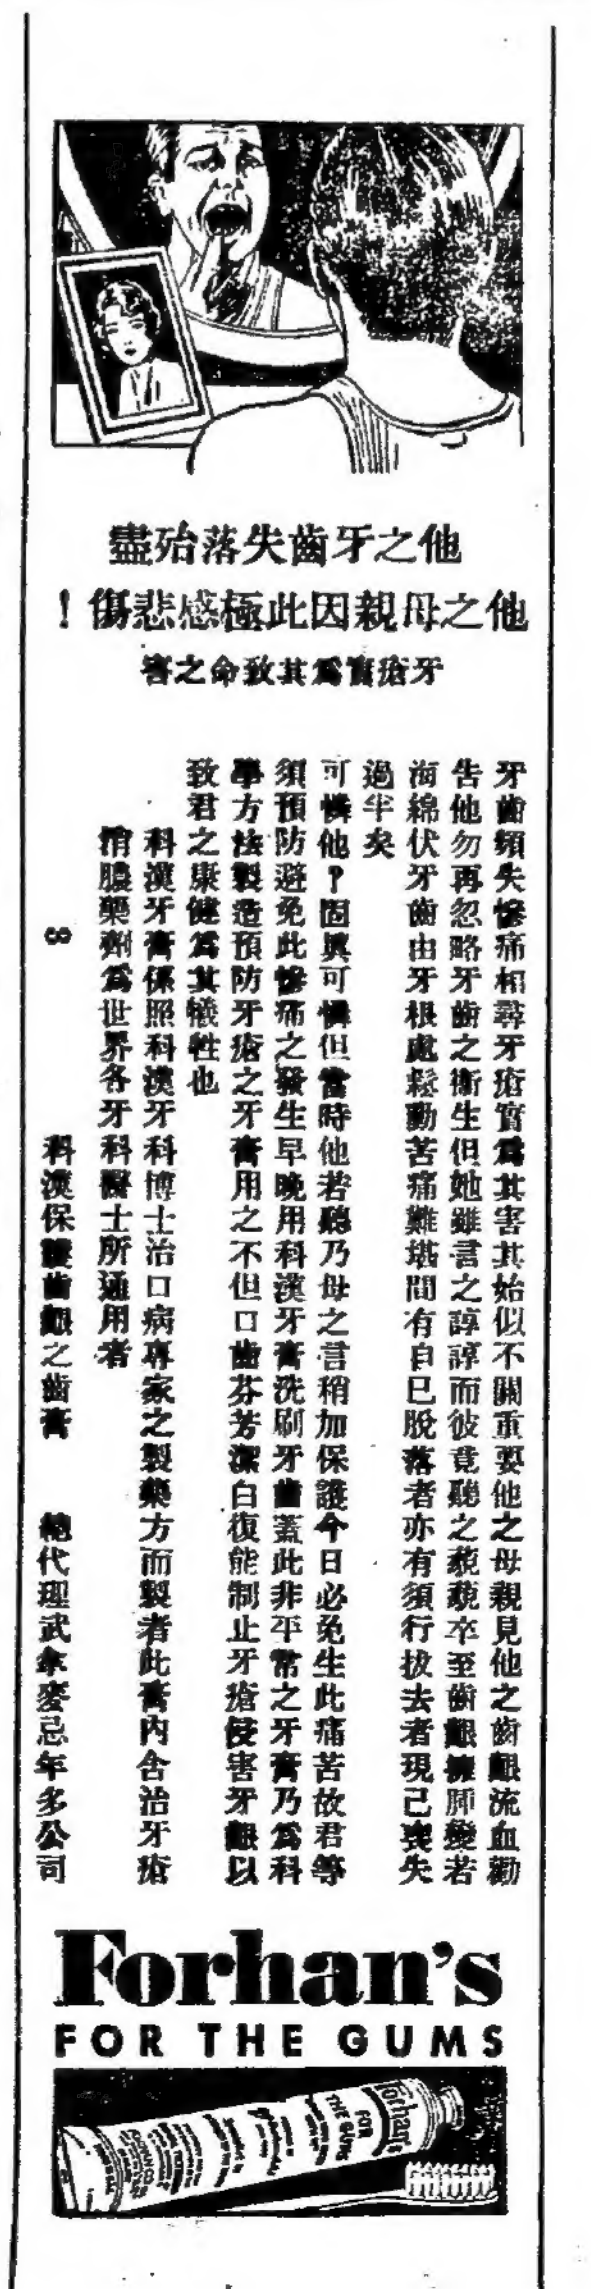 他之牙齒失落殆盡
他之母親因此極感悲傷！
牙瘡實爲其致命之害
牙齒頻失慘痛相尋牙瘡實爲其害其始似不關重要他之母親見他之齒齦流血勸
告他勿再忽略牙齒之衛生但她雖言之諄諄而彼竟聽之藐藐卒至齒齦擁腫變若
海綿伏牙齒由牙根處鬆動苦痛難堪間有自已脫落者亦有須行拔去者現已喪失
過半矣
可憐他？固異可憐但當時他若聽乃母之言稍加保護今日必免生此痛苦故君等
須預防避免此慘痛之發生早晚用科漢牙膏洗刷牙齒蓋此非平常之牙膏乃爲科
學方法製造預防牙瘡之牙膏用之不但口齒芬芳潔白復能制止牙瘡侵害牙齦以
致君之康健爲其犠牲也
科漢牙膏係照科漢牙科博士治口病專家之製藥方而製者此膏內含治牙瘡
消膿藥劑爲世界各牙科醫士所通用者
8
科漢保護齒齦之齒膏
總代理武拿麥忌年多公司
Forhan's
FOR THE GUMS
Forhan's
FOR
THE GUMS